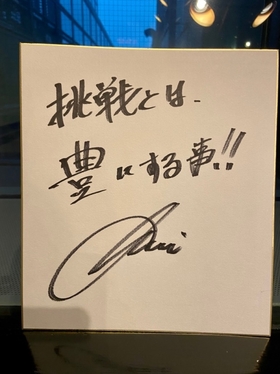 挑戦とは、
豊にする事!!